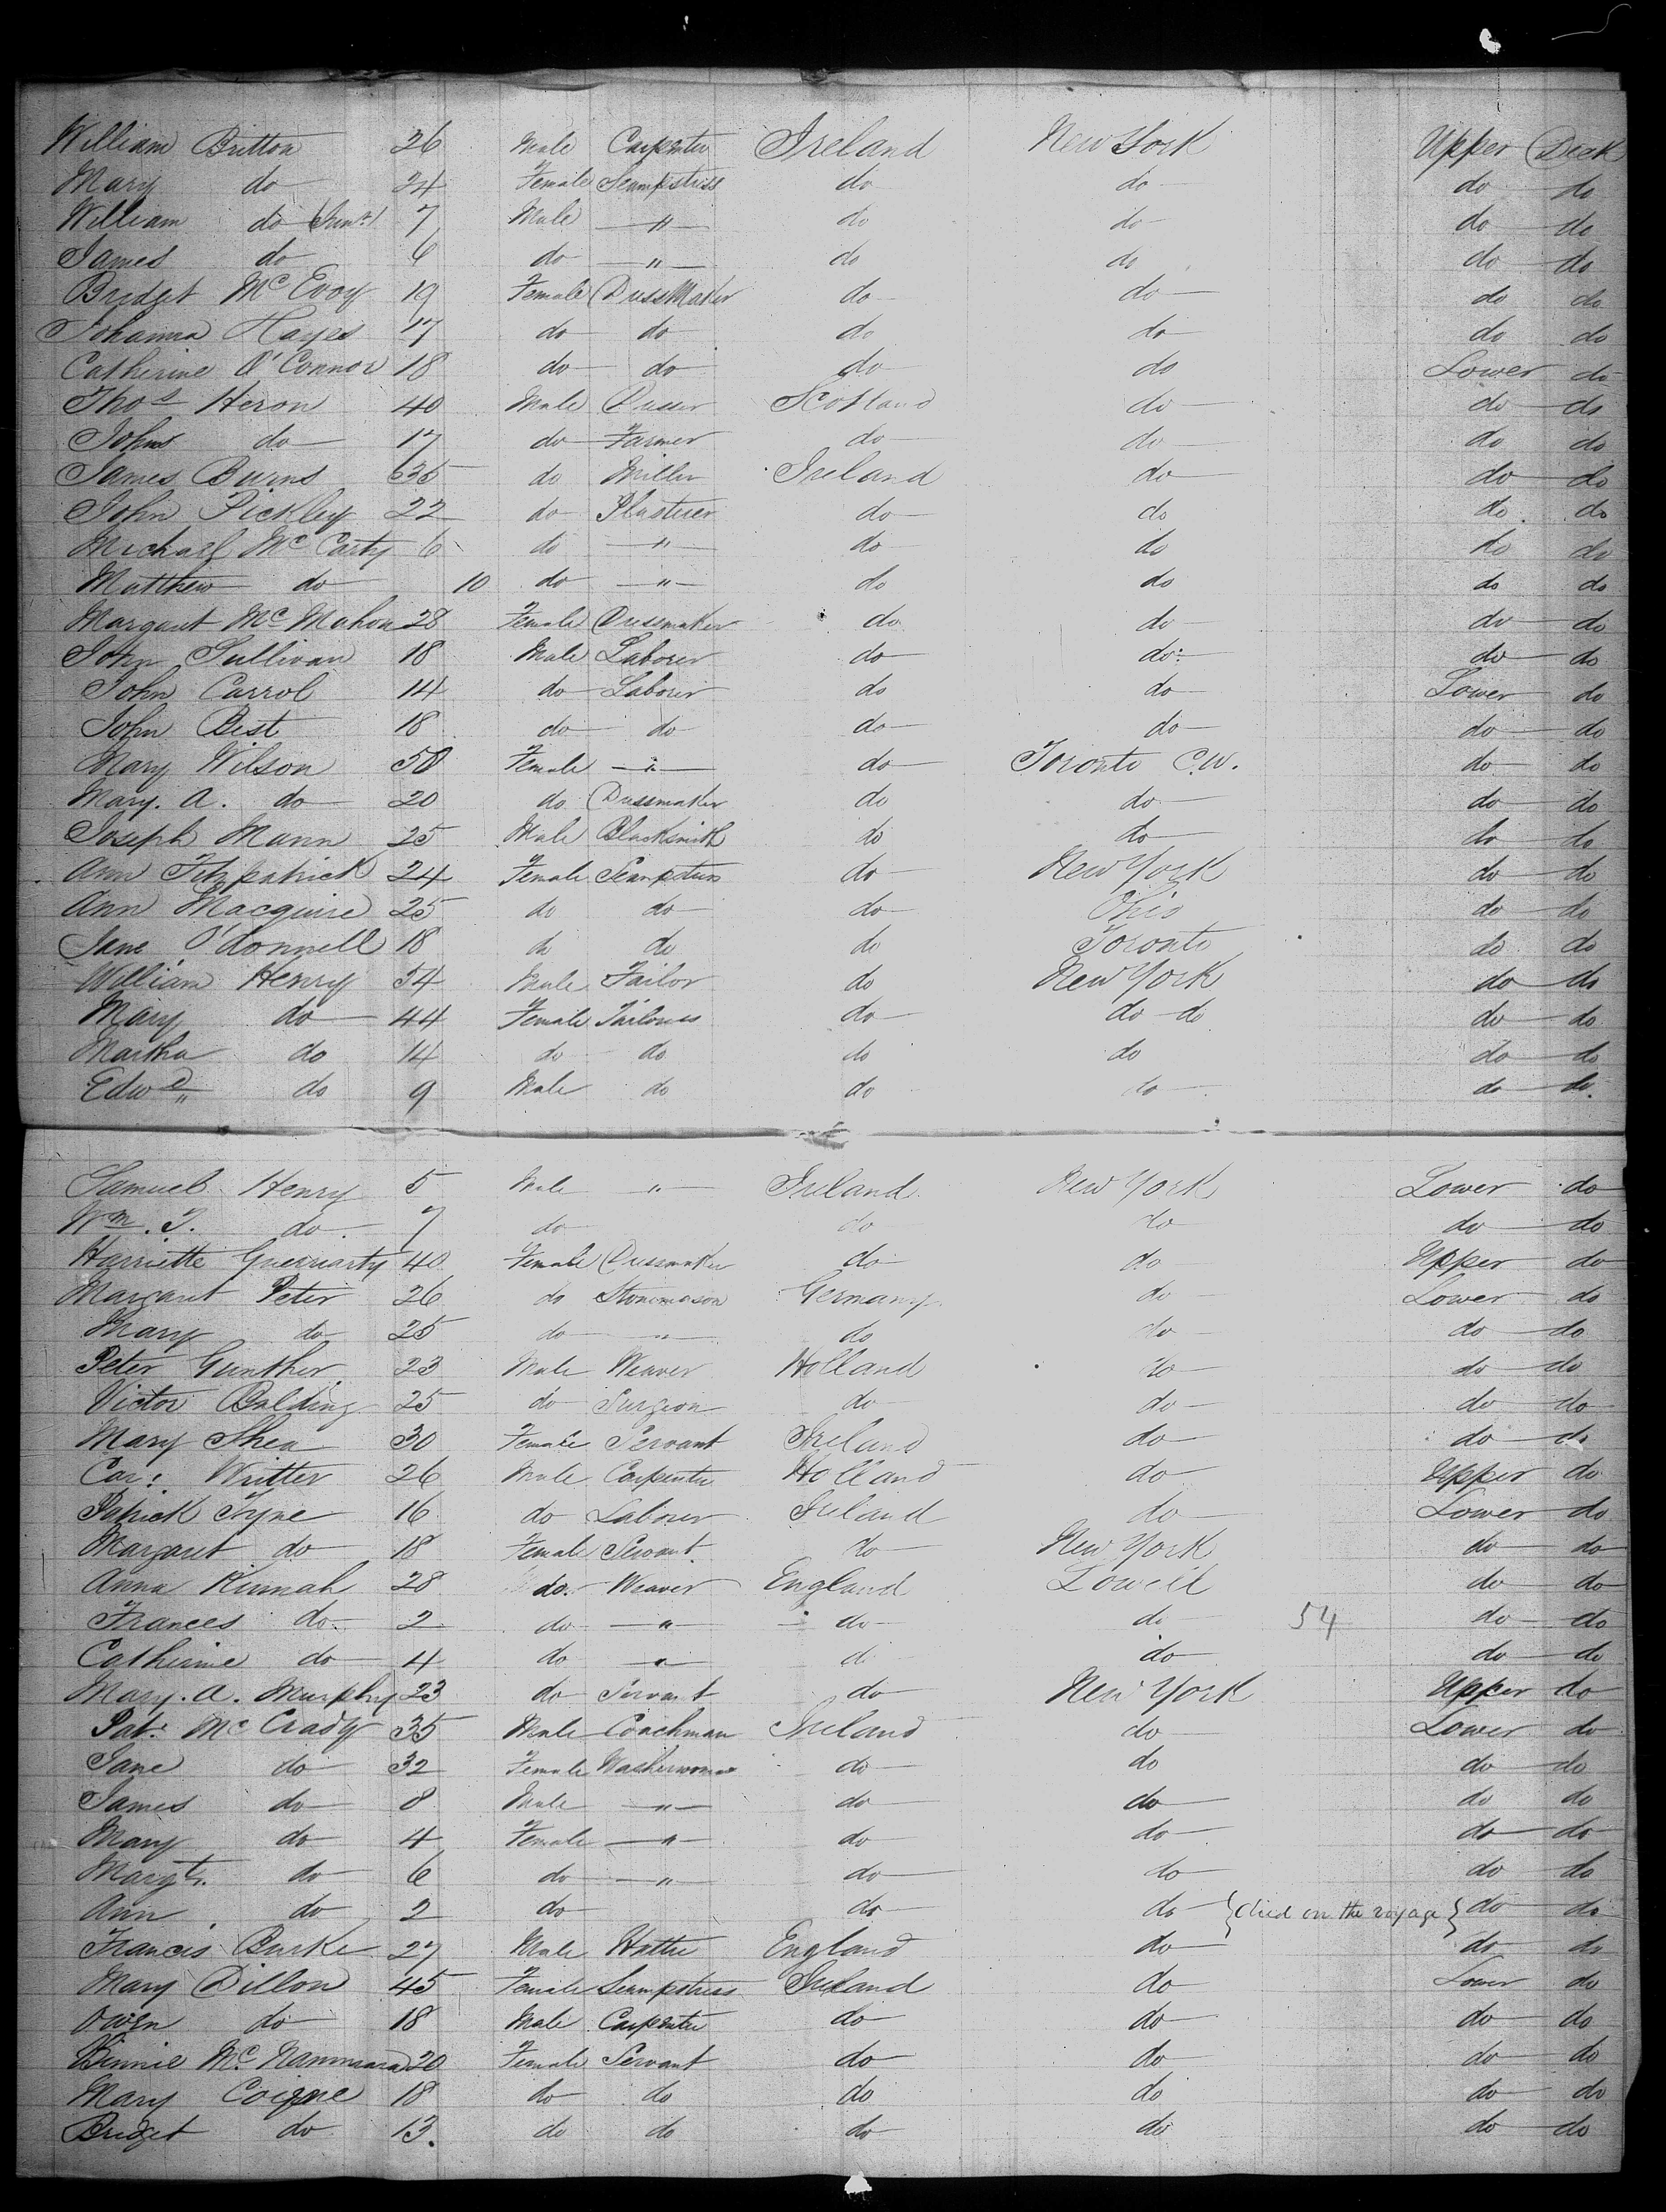 William Britton 26 Male Carpenter Ireland New York Upper Deck
Mary do 24 Female Seampstriss do do do do
William do Junr 7 Male " do do do do
James do 6 do " do do do do
Bridget Mc Evoy 19 Female DressMaker do do do do
Johanna Hayes 17 do do do do do do
Catherine O'Connor 18 do do do do Lower do
Thos Heron 40 Male Scotland do do do
John do 17 do Farmer do do do do
James Burns 35 do Miller Ireland do do do
John Fickley 22 do Plasterer do do do do
Michael Mc Carty 6 do " do do do do
Matthew do 10 do " do do do do
Margaret Mc Mahon 28 Female Dressmaker do do do do
John Sullivan 18 Male Laborer do do: do do
John Carrol 14 do Laborer do do Lower do
John Best 18 do do do do do do
Mary Wilson 50 Female " do Toronto C.W. do do
Mary. A. do 20 do Dressmaker do do do do
Joseph Mann 25 Male Blacksmith do do do do
Ann Fitzpatrick 24 Female Seampstress do New York do do
Ann Macguire 25 do do do Ohio do do
Jane O'donnell 18 do do do Toronto do do
William Henry 54 Male Tailor do New York do do
Mary do 44 Female Tailoress do do do do do
Martha do 14 do do do do do do
Edwd do 9 Male do do do do do.
Samuel Henry 5 Male " Ireland New York Lower do
Wm. J. do 7 do do do do do
Harriette Guerriarty 40 Female Dressmaker do do Upper do
Margaret Peter 26 do Stonemason Germany do Lower do
Mary do 25 do " do do do do
Peter Gunther 23 Male Weaver Holland do do do
Victor Balding 25 do Surgeon do do do do
Mary Shea 30 Female Servant Ireland do do do
Car: Writter 26 Male Carpenter Holland do Upper do
Patrick Tyne 16 do Laborer Ireland do Lower do
Margaret do 18 Female Servant do New York do do
Anna Kinnah 28 do. Weaver England Lowell do do
Frances do 2 do " do do 54 do do
Catherine do 4 do " do do do do
Mary. A. Murphy 23 do Servant do New York Upper do
Pat. Mc Crady 35 Male Coachman Ireland do Lower do
Jane do 32 Female Washerwoman do do do do
James do 8 Male " do do do do
Mary do 4 Female " do do do do
Margt. do 6 do " do do do do
Ann do 2 do do do {died on the voyage} do do
Francis Burke 27 Male Hatter England do do do
Mary Dillon 45 Female Seampstress Ireland do Lower do
Owen do 18 Male Carpenter do do do do
Binnie Mc Nammara 20 Female Servant do do do do
Mary Coigne 18 do do do do do do
Bridget do 13. do do do do do do